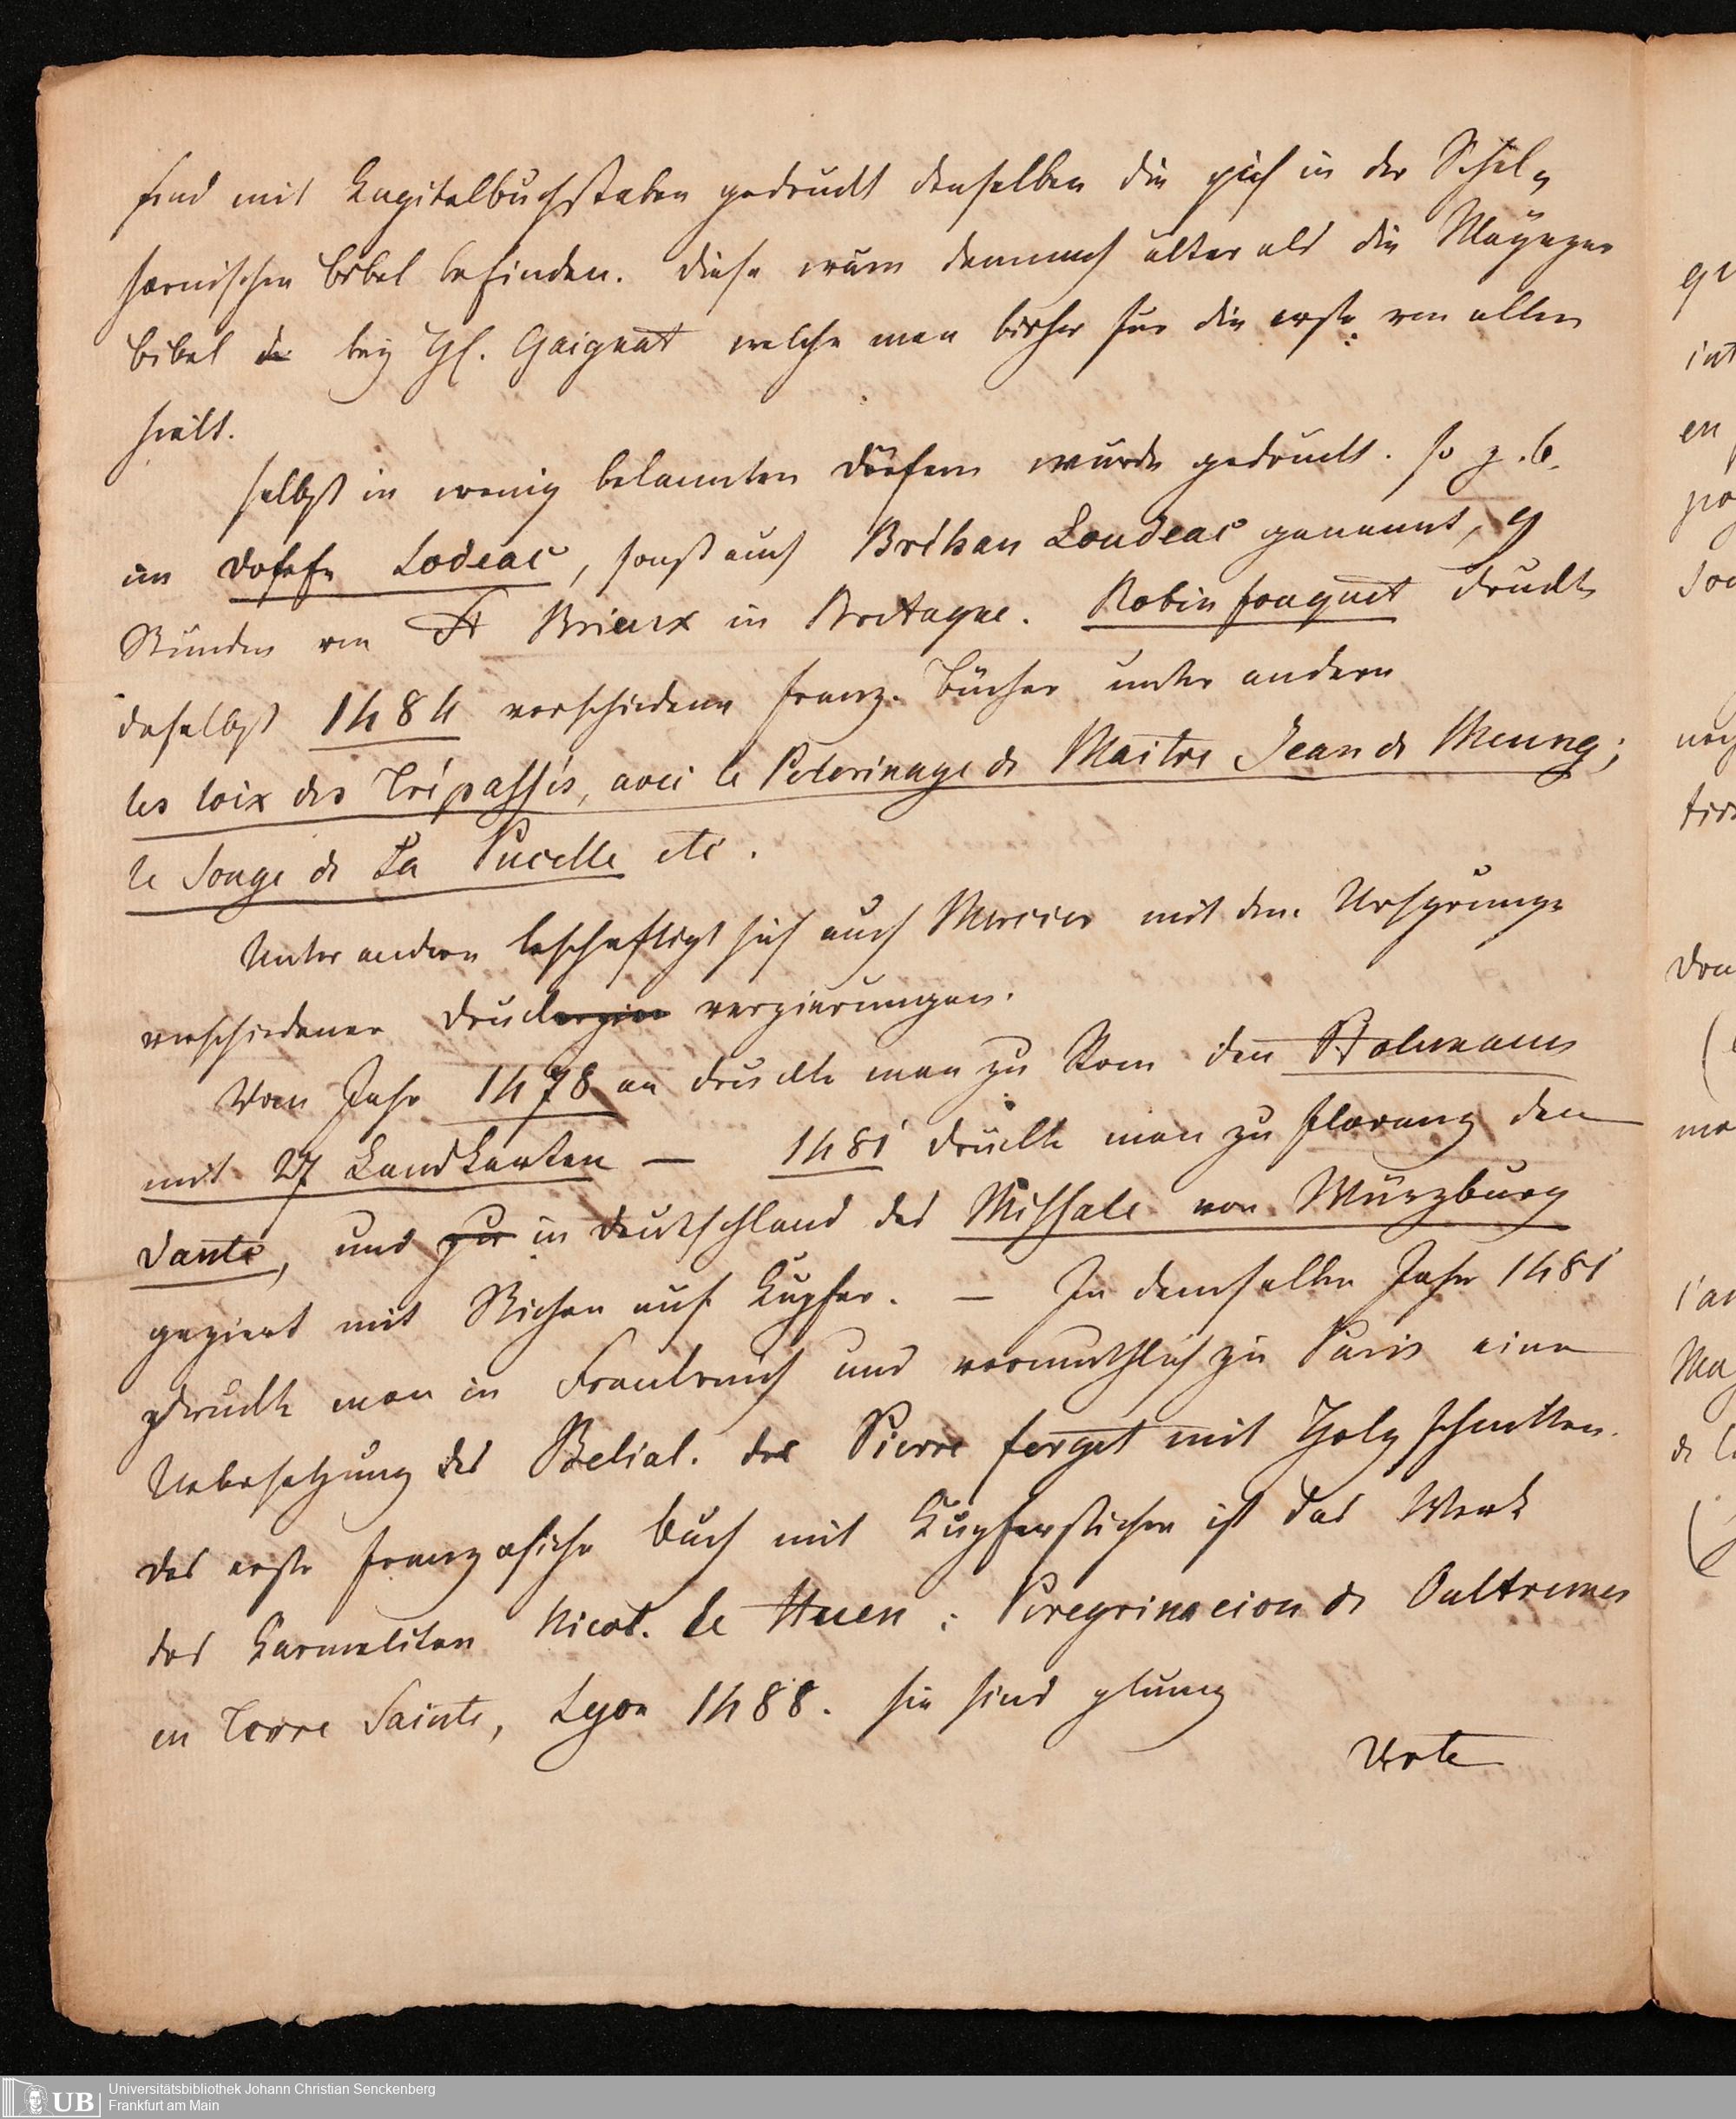 sind mit Kapitalbuchstaben gedruckt denselben die sich in der Schel„
hornischen bibel befinden. Diese wäre demnach älter als die Maynzer
bibel de bey H. Gaignat welche man bisher für die erste von allen
hielt.
Selbst in wenig bekannten Dörfern wurde gedruckt. So z. b.
im Dorfe Lodeac, sonst auch Bréhan Loudeac genannt, 9
Stunden von St Brieux in Bretagne. Robin fouquet druckte
daselbst 1484 verschiedene franz. Bücher unter andern
les loix des Trépassés, avec le Pelerinage de Maitre Jean de Meung;
le Songe de La Pucelle etc.
Unter andern beschaftigt sich auch Mercier mit dem Ursprunge
verschiedener Druck verzierungen.
Vom Jahr 1478 an druckte man zu Rom den Ptolemaeus
mit 27 Landkarten — 1481 druckte man zu florenz den
Dante, und zu in Deutschland das Missale von Würzburg
geziert mit Stichen auf Kupfer. — In demselben Jahr 1481
druckte man in Frankreich und vermuthlich zu Paris eine
Uebersetzung des Belial. des Pierre ferget mit Holzschnitten.
das erste französische Buch mit Kupferstichen ist das Werk
des Karmeliten Nicol. le Huen: Peregrinacion de Oultremer
en Terre Sainte, Lyon 1488. sie sind
qu
int
en
po
Ma
de